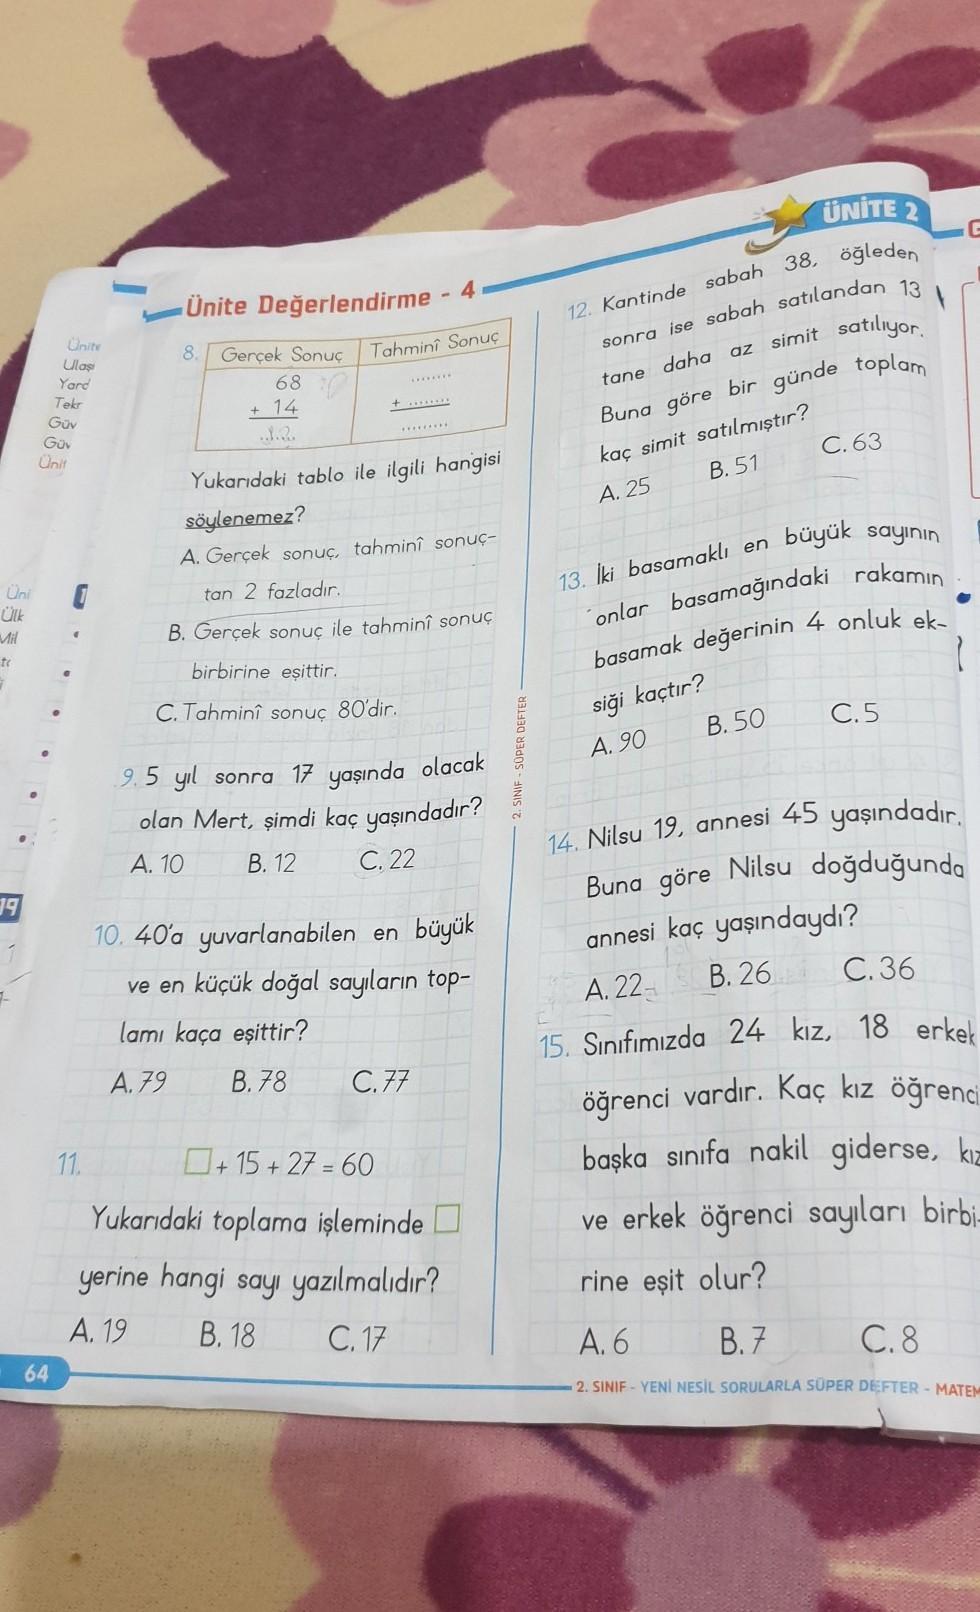 ÜNİTE 2
Ünite Değerlendirme - 4
Ünite
Ulaşı
Yard
Tekr
Güv
Güv
Ünit
Üni
Ülk
Mil
19
8.
Gerçek Sonuç Tahminî Sonuç
68 ........
+ 14 + ........
82 .........
Yukarıdaki tablo ile ilgili hangisi
söylenemez?
A. Gerçek sonuç, tahminî sonuç-
tan 2 fazladır.
B. Gerçek sonuç ile tahminî sonuç
birbirine eşittir.
C. Tahminî sonuç 80'dir.
9. 5 yıl sonra 17 yaşında olacak
olan Mert, şimdi kaç yaşındadır?
A. 10 B. 12 C. 22
10. 40'a yuvarlanabilen en büyük
ve en küçük doğal sayıların top-
lamı kaça eşittir?
A. 79 B. 78 C. 77
11. □ + 15 + 27 = 60
Yukarıdaki toplama işleminde □
yerine hangi sayı yazılmalıdır?
A. 19 B. 18 C. 17
64
2. SINIF - SÜPER DEFTER
12. Kantinde sabah 38, öğleden
sonra ise sabah satılandan 13
tane daha az simit satılıyor.
Buna göre bir günde toplam
kaç simit satılmıştır?
A. 25 B. 51 C. 63
13. İki basamaklı en büyük sayının
onlar basamağındaki rakamın
basamak değerinin 4 onluk ek-
siği kaçtır?
A. 90 B. 50 C. 5
14. Nilsu 19, annesi 45 yaşındadır.
Buna göre Nilsu doğduğunda
annesi kaç yaşındaydı?
A. 22 B. 26 C. 36
15. Sınıfımızda 24 kız, 18 erkek
öğrenci vardır. Kaç kız öğrenci
başka sınıfa nakil giderse, kız
ve erkek öğrenci sayıları birbi-
rine eşit olur?
A. 6 B. 7 C. 8
2. SINIF - YENİ NESİL SORULARLA SÜPER DEFTER - MATEM